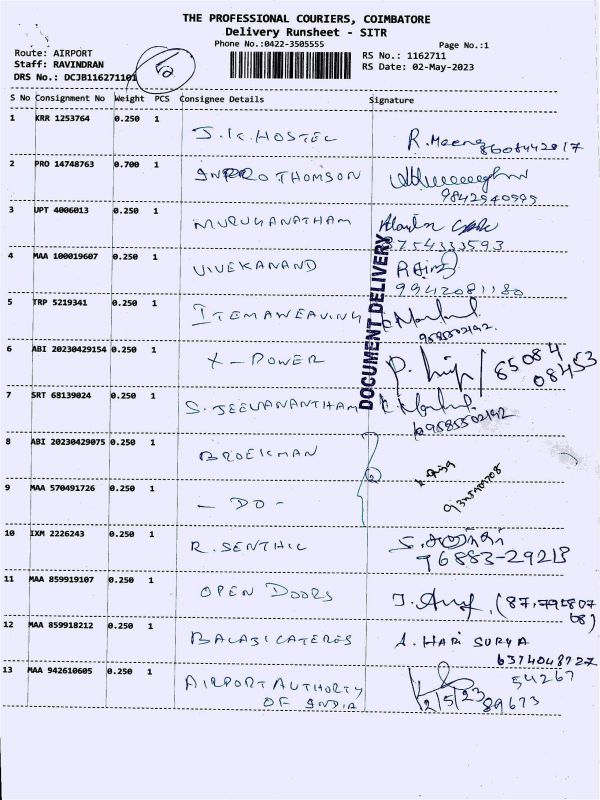 THE PROFESSIONAL COURIERS, COIMBATORE
Delivery Runsheet - SITR
Phone No.:0422-3505555 Page No.:1
Route: AIRPORT RS No.: 1162711
Staff: RAVINDRAN RS Date: 02-May-2023
DRS No.: DCJB116271101
S No Consignment No Weight PCS Consignee Details Signature
1 KRR 1253764 0.250 1 J.K. HOSTEL R. Meena
8608442017
2 PRO 14748763 0.700 1 THOMSON
9842540995
3 UPT 4006013 0.250 1 MURUGANATHAM
8754333593
4 MAA 100019607 0.250 1 VIVEKANAND
9942081180
5 TRP 5219341 0.250 1 ITEMAWEAVING
9585502192
DOCUMENT DELIVERY
6 ABI 20230429154 0.250 1 X-POWER P. 85084
08453
7 SRT 68139024 0.250 1 S. JEEVANANTHAM
9585502192
8 ABI 20230429075 0.250 1 BROEKMAN
9 MAA 570491726 0.250 1 - DO -
10 IXM 2226243 0.250 1 R. SENTHIL
96883-29213
11 MAA 859919107 0.250 1 OPEN DOORS
12 MAA 859918212 0.250 1 BALAJI CATERES A. HARI SURYA
6374048727
13 MAA 942610605 0.250 1 AIRPORT AUTHORTY 54267
OF INDIA 2/5/23 89673